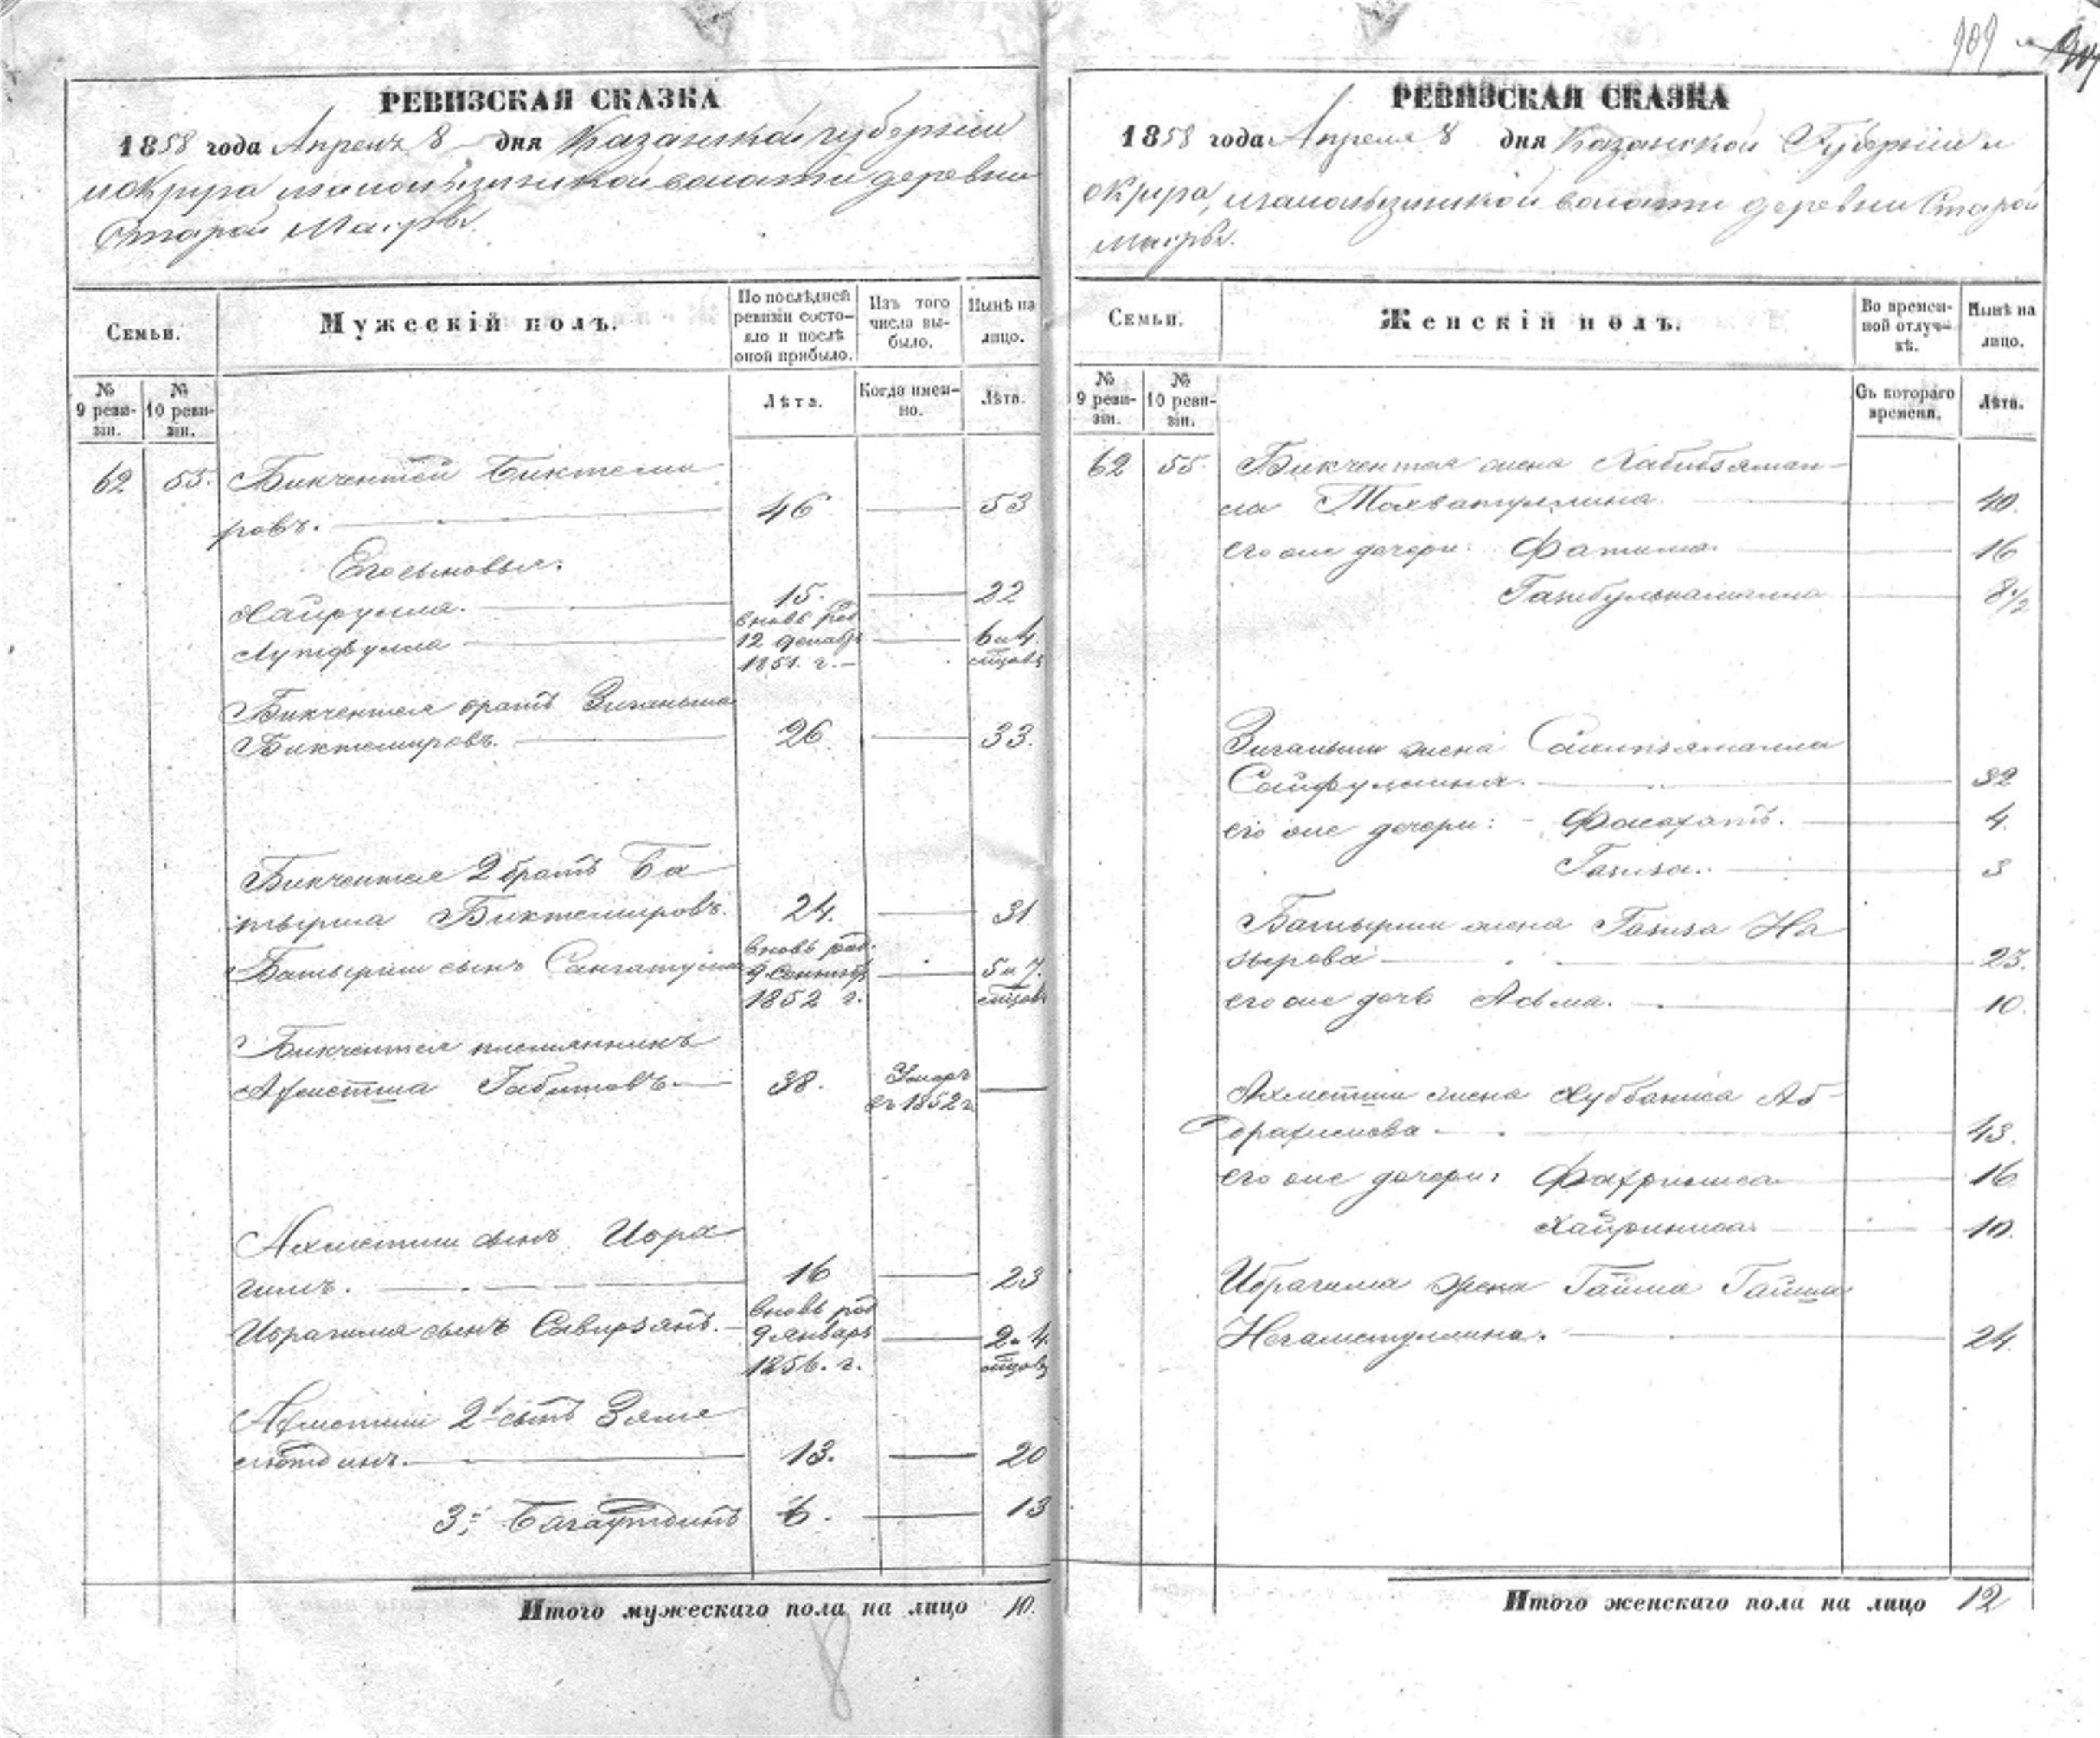 909
РЕВИЗСКАЯ СКАЗКА
1858 года Апреля 8 дня Казанской губернии
и округа волости деревни
Старой Масры
Семьи.
Мужескій полъ.
По послѣдней ревизіи состояло и послѣ оной прибыло.
Изъ того числа выбыло.
Нынѣ на лицо.
№ 9 ревизіи.
№ 10 ревизіи.
Лѣта.
Когда именно.
Лѣта.
62 55. Бикчентей Биктеми
ровъ. 46 53
Его сыновья:
Хайрулла. 15. 22
Лутфулла вновь род. 12 декабр 1851. г. 6 и 4. мѣсцовъ
Бикчентея братъ Зиганьша
Биктемировъ. 26 33.
Бикчентея 2 братъ Ба
тырша Биктемировъ. 24. 31
Батырши сынъ Сангатулла вновь род. 9 сентябр 1852 г. 5 и 7. мѣсцовъ
Бикчентея племянникъ
Ахметша Габитовъ. 38. Умеръ въ 1852 г.
Ахметши сынъ Ибра
гимъ. 16 23
Ибрагима сынъ Сабирзянъ. вновь род 9 январь 1856. г. 2 и 4. мѣсцовъ
Ахметши 2й сынъ Зяме
лютдинъ. 13. 20
3й Багаутдинъ 6. 13
Итого мужескаго пола на лицо 10.
8
РЕВИЗСКАЯ СКАЗКА
1858 года Апреля 8 дня Казанской Губернии и
округа, волости деревни Старой
Масры.
Семьи.
Женскій полъ.
Во временной отлучкѣ.
Нынѣ на лицо.
№ 9 ревизіи.
№ 10 ревизіи.
Съ котораго времени.
Лѣта.
62 55. Бикчентея жена Хабибзяман
на 40.
его же дочери: Фатима 16
8 1/2
Зиганьши жена
Сайфуллина. 32
его же дочери: Фасахатъ. 4.
Газиза. 3
Батырши жена Газиза На
зырова 23.
его же дочь Асьма. 10.
Ахметши жена Хуббаниса Аб
драхимова. 43.
его же дочери: Фахриниса 16
Хайриниса 10.
Ибрагима жена Гайша
Негаметуллина. 24.
Итого женскаго пола на лицо 12